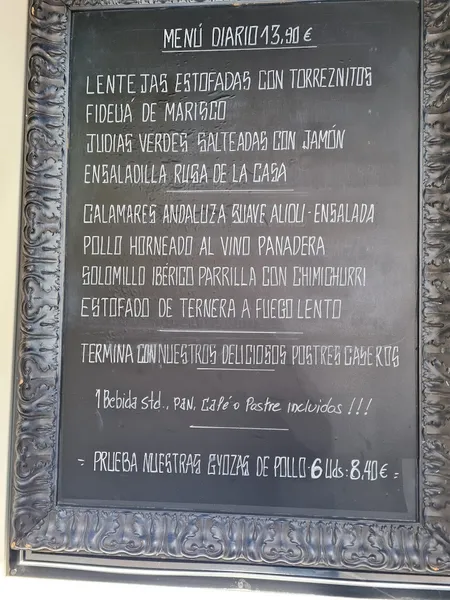 MENÚ DIARIO 13,90 €
LENTEJAS ESTOFADAS CON TORREZNITOS
FIDEUÁ DE MARISCO
JUDIAS VERDES SALTEADAS CON JAMÓN
ENSALADILLA RUSA DE LA CASA
CALAMARES ANDALUZA SUAVE ALIOLI - ENSALADA
POLLO HORNEADO AL VINO PANADERA
SOLOMILLO IBÉRICO PARRILLA CON CHIMICHURRI
ESTOFADO DE TERNERA A FUEGO LENTO
TERMINA CON NUESTROS DELICIOSOS POSTRES CASEROS
1 Bebida std., pan, Café o Postre incluidos !!!
- PRUEBA NUESTRAS GYOZAS DE POLLO: 6 Uds: 8,40€ -